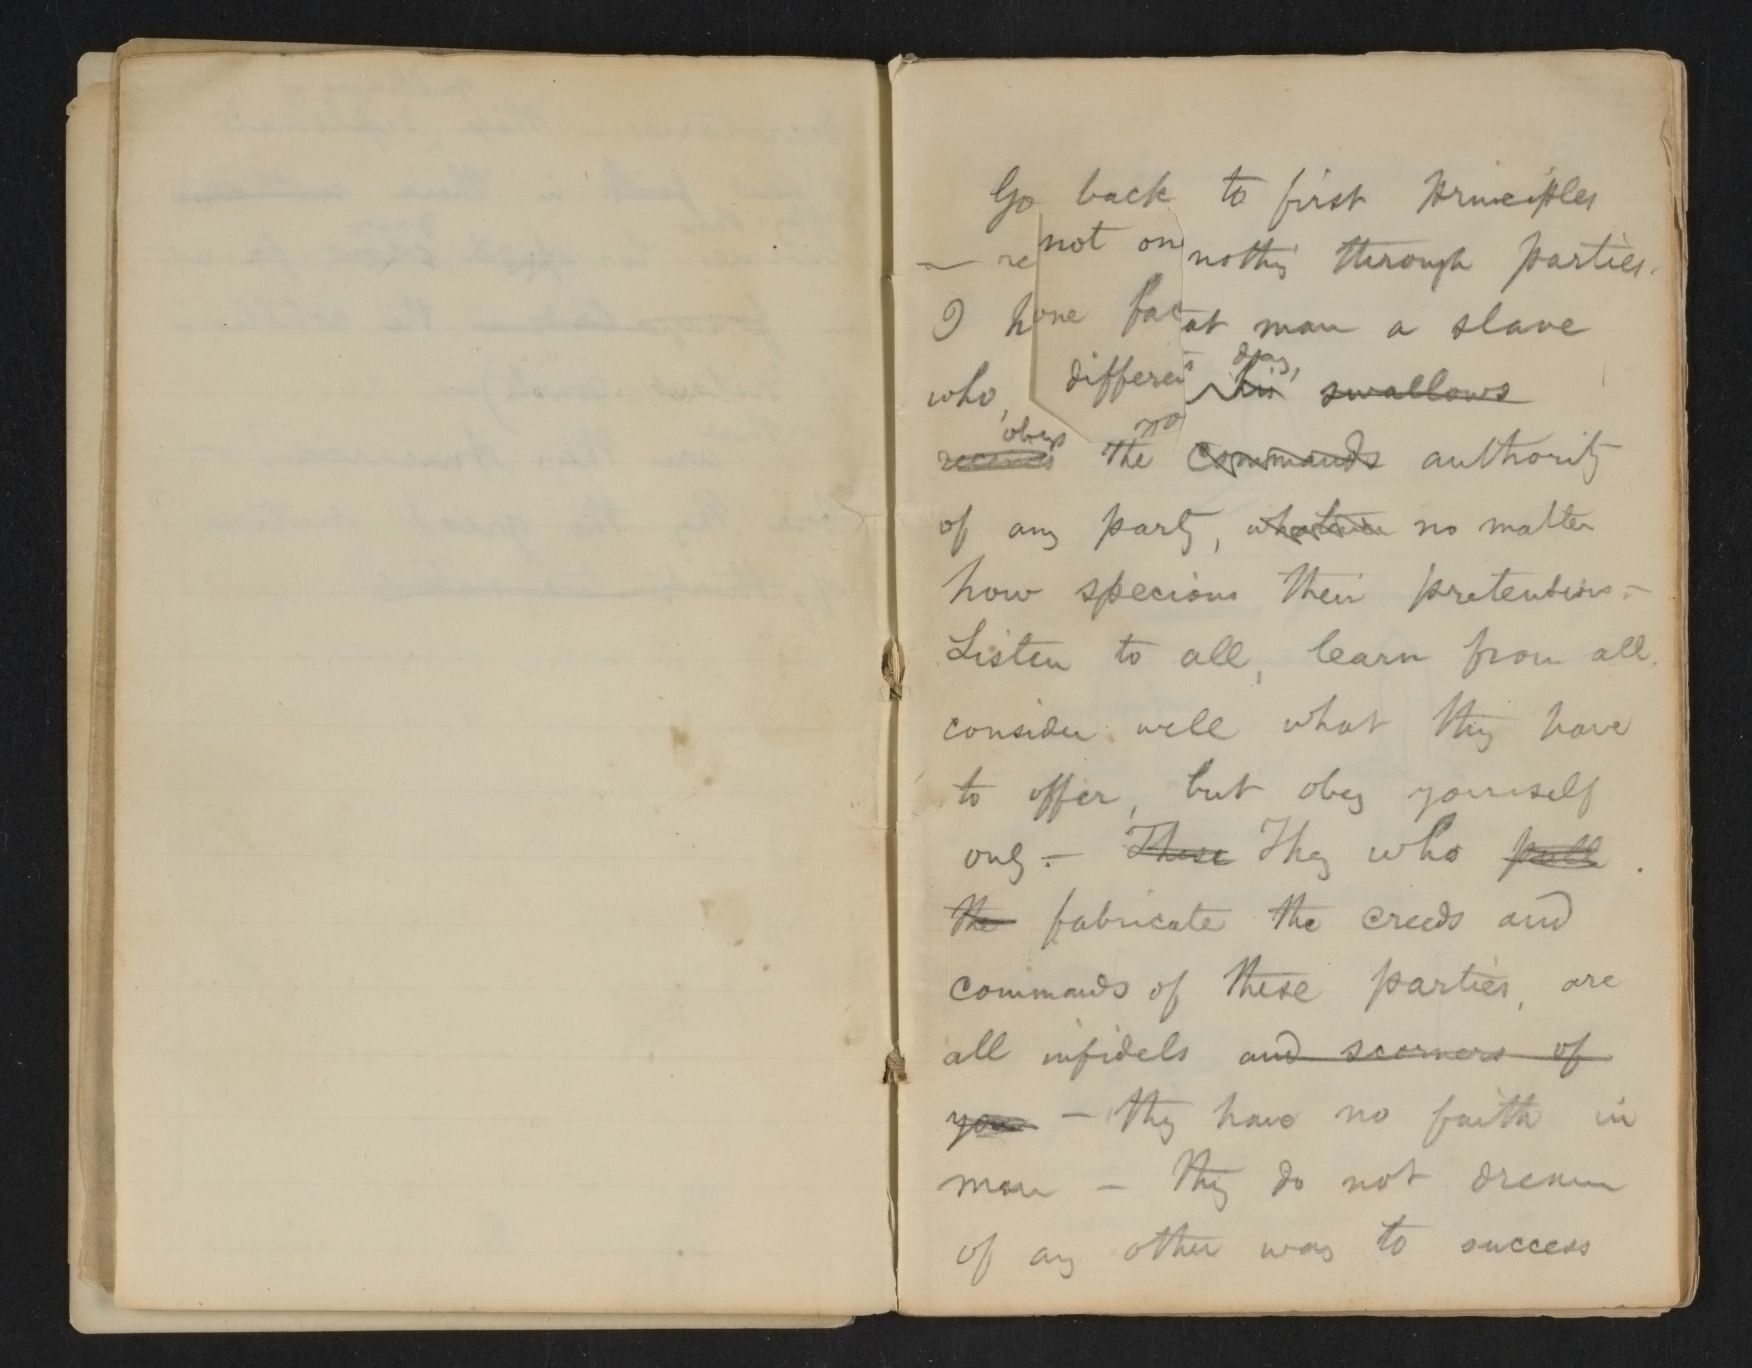 Go back to first principles
— re not on nothing through parties.
I h one fac at man a slave
who, differen day, his swallows
obeys no
receives the commands authority
of any party, no matter
how specious their pretensions.—
Listen to all, learn from all,
consider well what they have
to offer, but obey yourself
only.— These They who pull
the fabricate the creeds and
commands of these parties, are
all infidels and scorners of
you — they have no faith in
man — they do not dream
of any other way to success